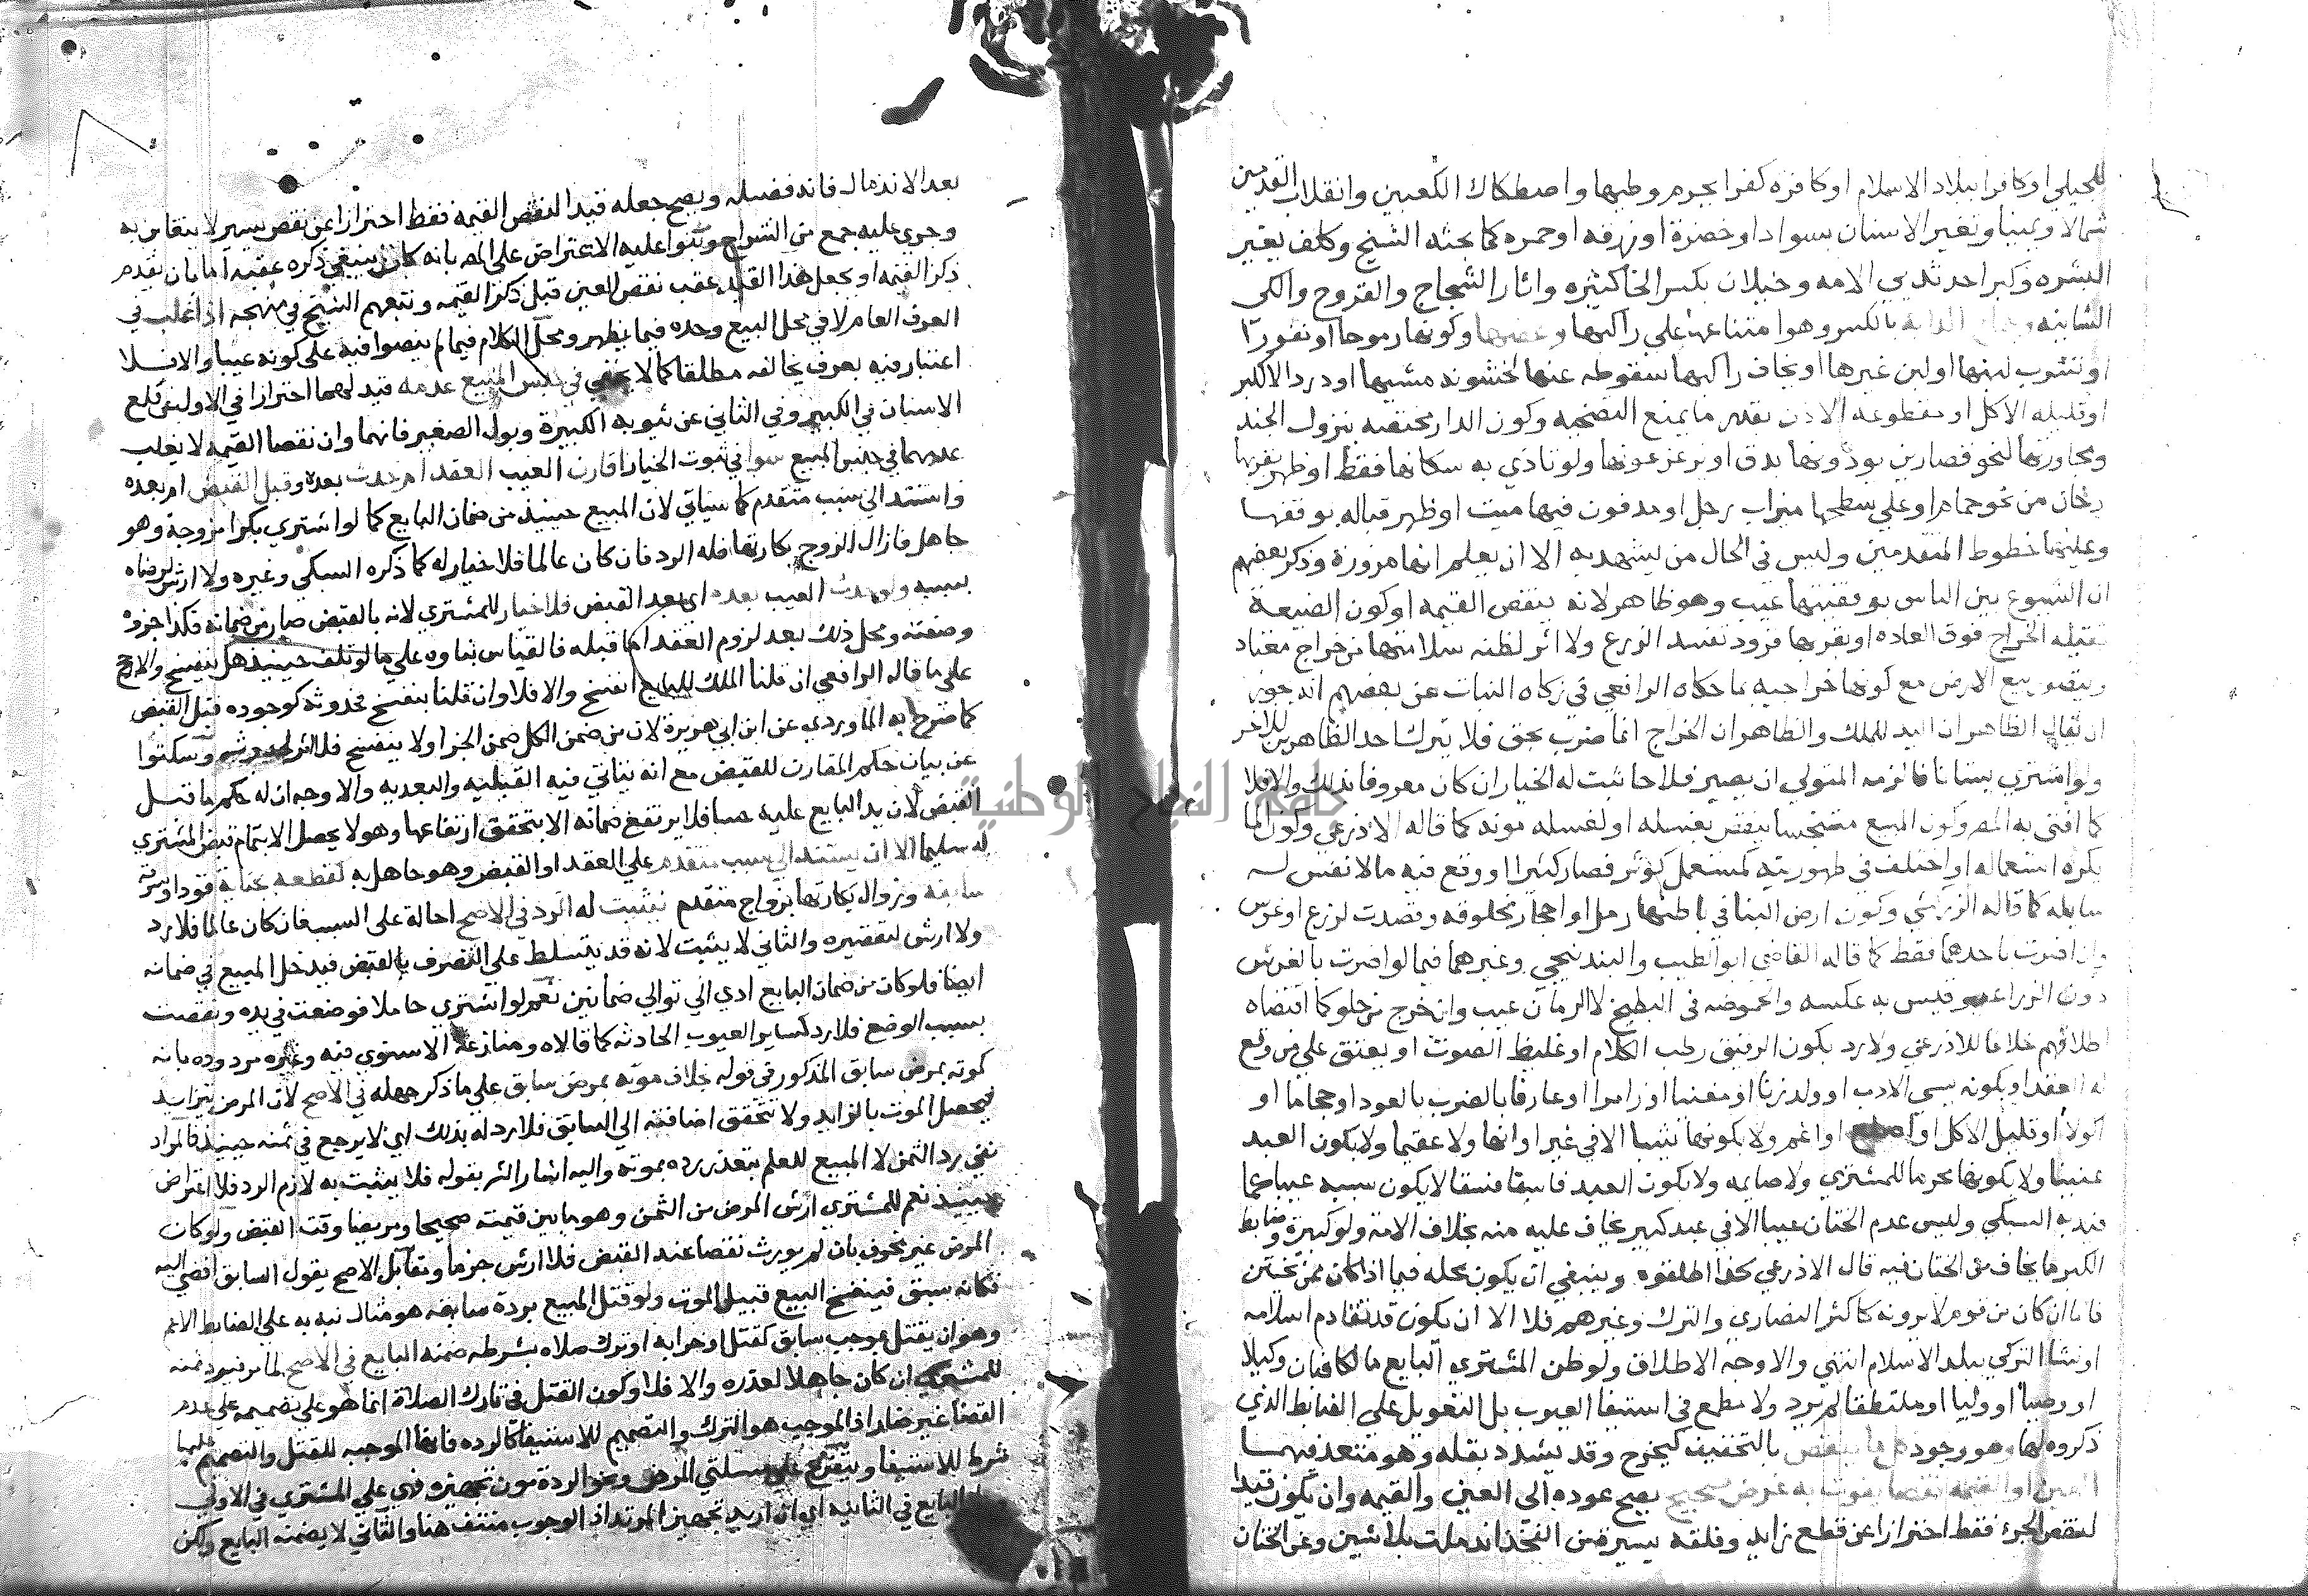 للجيلي او كافرا ببلاد الاسلام او كافره كفرا يحرم وطيها واصطكاك الكعبين وانقلاب القدمين
شمالا ويمينا وتغير الاسنان بسواد او خضرة او زرقه او حمره كما بحثه الشيخ وكلف يغير
البشره وكبر احد ثديي الامه وخيلان بكسر الخا كثيره واثار الشجاج والقروح والكي
الشاينه الدابة بالكسر وهو امتناعها على راكبها وعضها وكونها رموحا او نفورا
او تشرب لبنها او لبن غيرها او يخاف راكبها سقوطه عنها لخشونه مشيها او درد الا لكبر
او قليله الاكل او مقطوعه الاذن بقدر ما يمنع التضحيه وكون الدار مختصه بنزول الجند
ومجاورتها لنحو قصارين يوذونها بدق او يزعزعونها ولو تاذي به سكانها فقط او ظهر بقربها
دخان من نحو حمام او على سطحها ميزاب رجل او مدفون فيها ميت او ظهر قباله بوقفها
وعليها خطوط المتقدمين وليس في الحال من يشهد به الا ان يعلم انها مزورة وذكر بعضهم
ان الشيوع بين الناس بوقفيتها عيب وهو ظاهر لانه ينقص القيمه او كون الضيعة
ثقيله الخراج فوق العاده او بقربها قرود تفسد الزرع ولا اثر لظنه سلامتها من خراج معتاد
ويتصور بيع الارض مع كونها خراجيه بما حكاه الرافعي في زكاه النبات عن بعضهم انه يجوز
ان يقال الظاهر ان اليد للملك والظاهر ان الخراج انما ضرب بحق فلا يترك احد الظاهرين للاخر
ولو اشتري بستانا فالزمه المتولي ان يصير فلاحا ثبت له الخيار ان كان معروفا بذلك والا فلا
كما افتى به المص وكون المبيع متنجسا ينقص بغسله او لغسله مونه كما قاله الاذرعي وكون الما
يكره استعماله او اختلف في طهوريته كمستعمل كوثر فصار كثيرا او وقع فيه ما لا نفس له
سايله كما قاله الزركشي وكون ارض البنا في باطنها رمل او احجار مخلوقه وقصدت لزرع او غرس
وان اضرت باحدهما فقط كما قاله القاضي ابو الطيب والبندنيجي وغيرهما فيما لو اضرت بالغرس
دون الزراعه وقيس به عكسه والحموضه في البطيخ لا الرمان عيب وان خرج من حلو كما اقتضاه
اطلاقهم خلافا للاذرعي ولا رد بكون الرقيق رطب الكلام او غليظ الصوت او يعتق علي من وقع
له العقد او بكونه سيى الادب او ولد زنا او مغنيا او زامرا او عارفا بالضرب بالعود او حجاما او
اكولا او قليل الاكل او اصلع او اغم ولا بكونها ثيبا الا في غير اوانها ولا عقيما ولا بكون العبد
عنينا ولا بكونها محرما للمشتري ولا صايمه ولا بكون العبد فاسقا فسقا لا يكون سببه عيبا كما
قيد به السبكي وليس عدم الختان عيبا الا في عبد كبير يخاف عليه منه بخلاف الامة ولو كبيرة وضابط
الكبر ما يخاف من الختان فيه قال الاذرعي كذا اطلقوه وينبغي ان يكون محله فيما اذا كان ممن يختتن
فاما ان كان من قوم لا يرونه كاكثر النصاري والترك وغيرهم فلا الا ان يكون قد تقادم اسلامه
او نشا التركي ببلد الاسلام انتهي والاوجه الاطلاق ولو ظن المشتري البايع مالكا فبان وكيلا
او وصيا او وليا او ملتقطا لم يرد ولا مطمع في استيفا العيوب بل التعويل علي الضابط الذي
ذكروه لها وهو وجود كل ما ينقص بالتخفيف كيخرج وقد يشدد بقله وهو متعد فيهما
العين او القيمه نقصا يفوت به غرض صحيح يصح عوده الي العين والقيمه وان يكون قيدا
لنقص الجزء فقط احترازا عن قطع زايد وفلقه يسيرة من الفخذ اندملت بلا شين وعن الختان
بعد الاندمال فانه فضيله ويصح جعله قيدا لنقص القيمه فقط احترازا عن نقص يسير لا يتغابن به
وجري عليه جمع من الشراح وبنوا عليه الاعتراض على المص بانه كان ينبغي ذكره عقبه اما بان يقدم
ذكر القيمه او يجعل هذا القيد عقب نقص العين قبل ذكر القيمه وتبعهم الشيخ في منهجه اذ الغلب في
العرف العام لا في محل البيع وحده فيما يظهر ومحل الكلام فيما لم ينصوا فيه على كونه عيبا والا فلا
اعتبار فيه بعرف يخالفه مطلقا كما لا يخفي في جنس المبيع عدمه قيد لهما احترازا في الاول عن قلع
الاسنان في الكبير وفي الثاني عن ثيوبه الكبيرة وبول الصغير فانهما وان نقصا القيمه لا يغلب
عدمهما في جنس المبيع سوا في ثبوت الخيار اقارن العيب العقد ام حدث بعده وقبل القبض ام بعده
واستند الي سبب متقدم كما سياتي لان المبيع حينيذ من ضمان البايع كما لو اشتري بكرا مزوجة وهو
جاهل فازال الزوج بكارتها فله الرد فان كان عالما فلا خيار له كما ذكره السبكي وغيره ولا ارش لرضاه
بسببه ولو حدث العيب بعده اي بعد القبض فلا خيار للمشتري لانه بالقبض صار من ضمانه فكذا جزوه
وصفته ومحل ذلك بعد لزوم العقد اما قبله فالقياس بناوه على ما لو تلف حينيذ هل ينفسخ والارجح
على ما قاله الرافعي ان قلنا الملك للبايع انفسخ والا فلا وان قلنا ينفسخ فحدوثه كوجوده قبل القبض
كما صرح به الماوردي عن ابن ابي هريرة لان من ضمن الكل ضمن الجزا ولا ينفسخ فلا اثر لحدوثه وسكتوا
عن بيان حكم المقارن للقبض مع انه يتاتي فيه القبليه والبعديه والاوجه ان له حكم ما قبل
القبض لان يد البايع عليه حسا فلا يرتفع ضمانه الا بتحقق ارتفاعها وهو لا يحصل الا بتمام قبض المشتري
له سليما الا ان يستند الي سبب متقدم علي العقد او القبض وهو جاهل به لقطعه بجناية قودا وسرقة
سابقه وزوال بكارتها بزواج متقدم فيثبت له الرد في الاصح احالة على السبب فان كان عالما فلا رد
ولا ارش لتقصيره والثاني لا يثبت لانه قد يتسلط علي التصرف بالقبض فيدخل المبيع في ضمانه
ايضا فلو كان من ضمان البايع ادي الي توالي ضمانين نعم لو اشتري حاملا فوضعت في يده ونقصت
بسبب الوضع فلا رد كساير العيوب الحادثه كما قالاه ومنازعة الاسنوي فيه وغيره مردوده بانه
كموته بمرض سابق المذكور في قوله بخلاف موته بمرض سابق علي ما ذكر جهله في الاصح لان المرض يتزايد
فيحصل الموت بالزايد ولا تتحقق اضافته الي السابق فلا رد له بذلك اي لا يرجع في ثمنه حينيذ فالمراد
نفي رد الثمن لا المبيع للعلم بتعذر رده بموته واليه اشار الشر بقوله فلا يثبت به لازم الرد فلا اعتراض
حينيذ نعم للمشتري ارش المرض من الثمن وهو ما بين قيمته صحيحا ومريضا وقت القبض ولو كان
المرض غير مخوف بان لم يورث نقصا عند القبض فلا ارش جزما ومقابل الاصح يقول السابق افضي اليه
فكانه سبق فينفسخ البيع قبيل الموت ولو قتل المبيع بردة سابقه هو مثال نبه به علي الضابط الاعم
وهو ان يقتل بموجب سابق كقتل او حرابه او ترك صلاه بشرطه ضمنه البايع في الاصح لما مر فيرد ثمنه
للمشتري ان كان جاهلا لعذره والا فلا وكون القتل في تارك الصلاة انما هو علي تصميمه علي عدم
القضا غير ضار اذ الموجب هو الترك والتصميم للاستيفا كالرده فانها الموجبه للقتل والتصميم عليها
شرط للاستيفا ويتفرع علي مسلتي المرض ونحو الردة مون تجهيزه فهي علي المشتري في الاولي
وعلى البايع في الثانيه اي ان اريد تجهيز المرتد اذ الوجوب منتف هنا والثاني لا يضمنه البايع ولكن
جامعة النجاح الوطنية